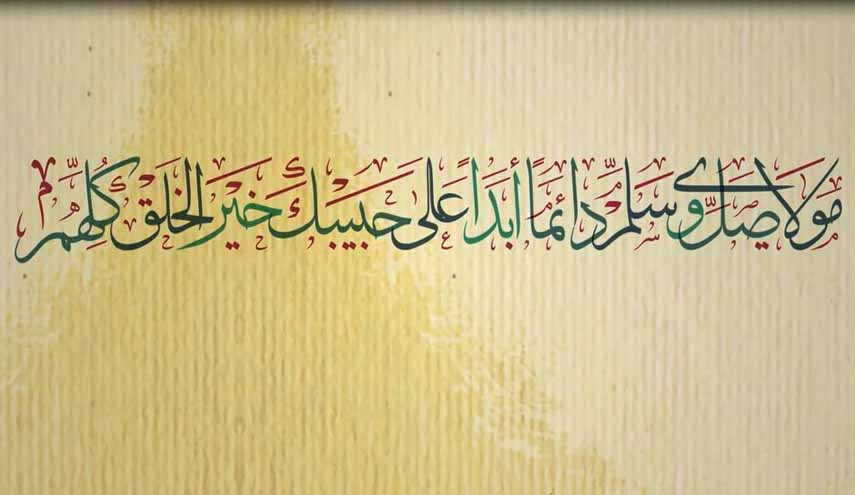 مَولَاي صَلِّ وَ سَلِّم دَائِمًا أَبَدًا عَلَى حَبِيبِكَ خَيرِ الخَلقِ كُلِّهِمِ